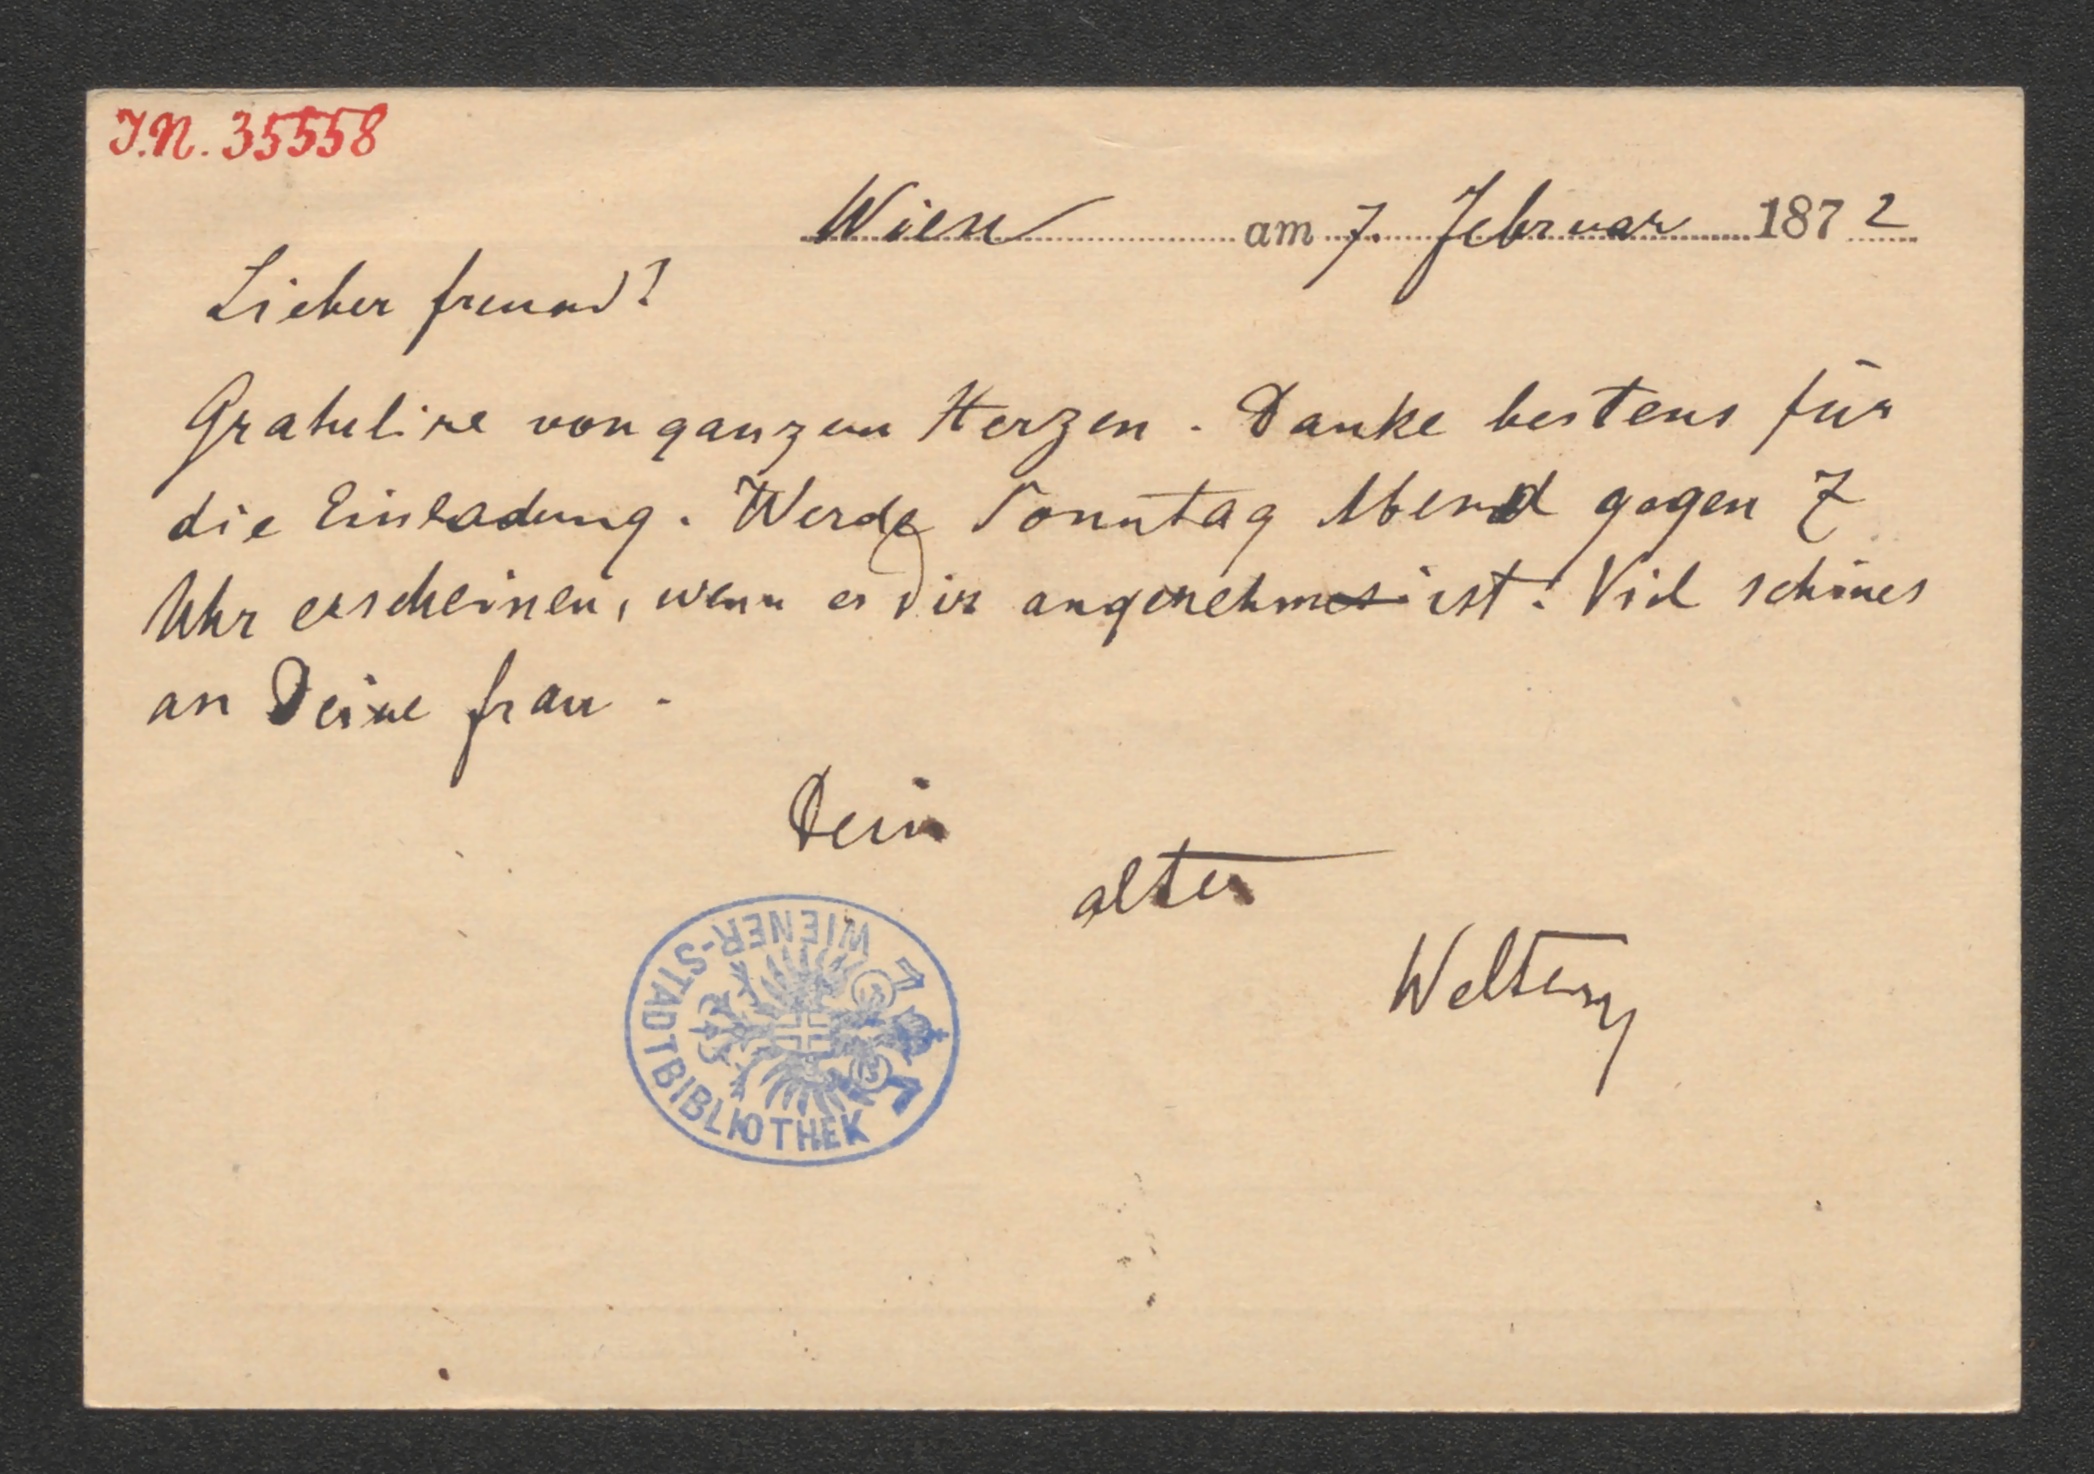 I.N. 35558
Wien am 7. Februar 1872
Lieber Freund!
Gratulire von ganzem Herzen. Danke bestens für
die Einladung. Werde Sonntag Abend gegen 7
Uhr erscheinen, wenn es Dir angenehmes ist! Viel schönes
an Deine Frau.
Dein
alter
WIENER-STADTBIBLIOTHEK